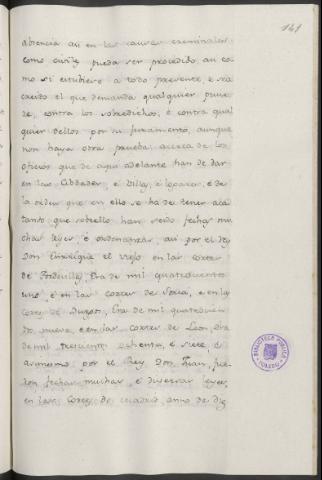 141
absencia asi en las causas criminales,
como civiles pueda ser procedido, asi co
mo si estubiere a todo presente, e sea
creido el que demanda qualquier prue
de, contra los sobredichos, e contra qual
quier dellos por su juramento, aunque
non haya otra prueba: acerca de los
oficios que de aqui adelante han de dar
en las Cibdades, e Villas, e Logares, e de
la orden que en ello se ha de tener aca
tando que sobrello han seido fechas mu
chas leyes, e ordenanzas, asi por el Rey
Don Enrrique el viejo en las cortes
de Era de mil quatrocientos
uno, e en las cortes de Soria, e en las
Cortes de Burgos, Era de mil quatrocien
to, nueve, e en las cortes de Leon, Era
de mil trecientos ochenta, e siete, e
asimismo por el Rey Don Juan, fue
ron fechas muchas, e diversas leyes,
en las Cortes de Madrid, anno de diez
BIBLIOTECA PUBLICA
TOLEDO